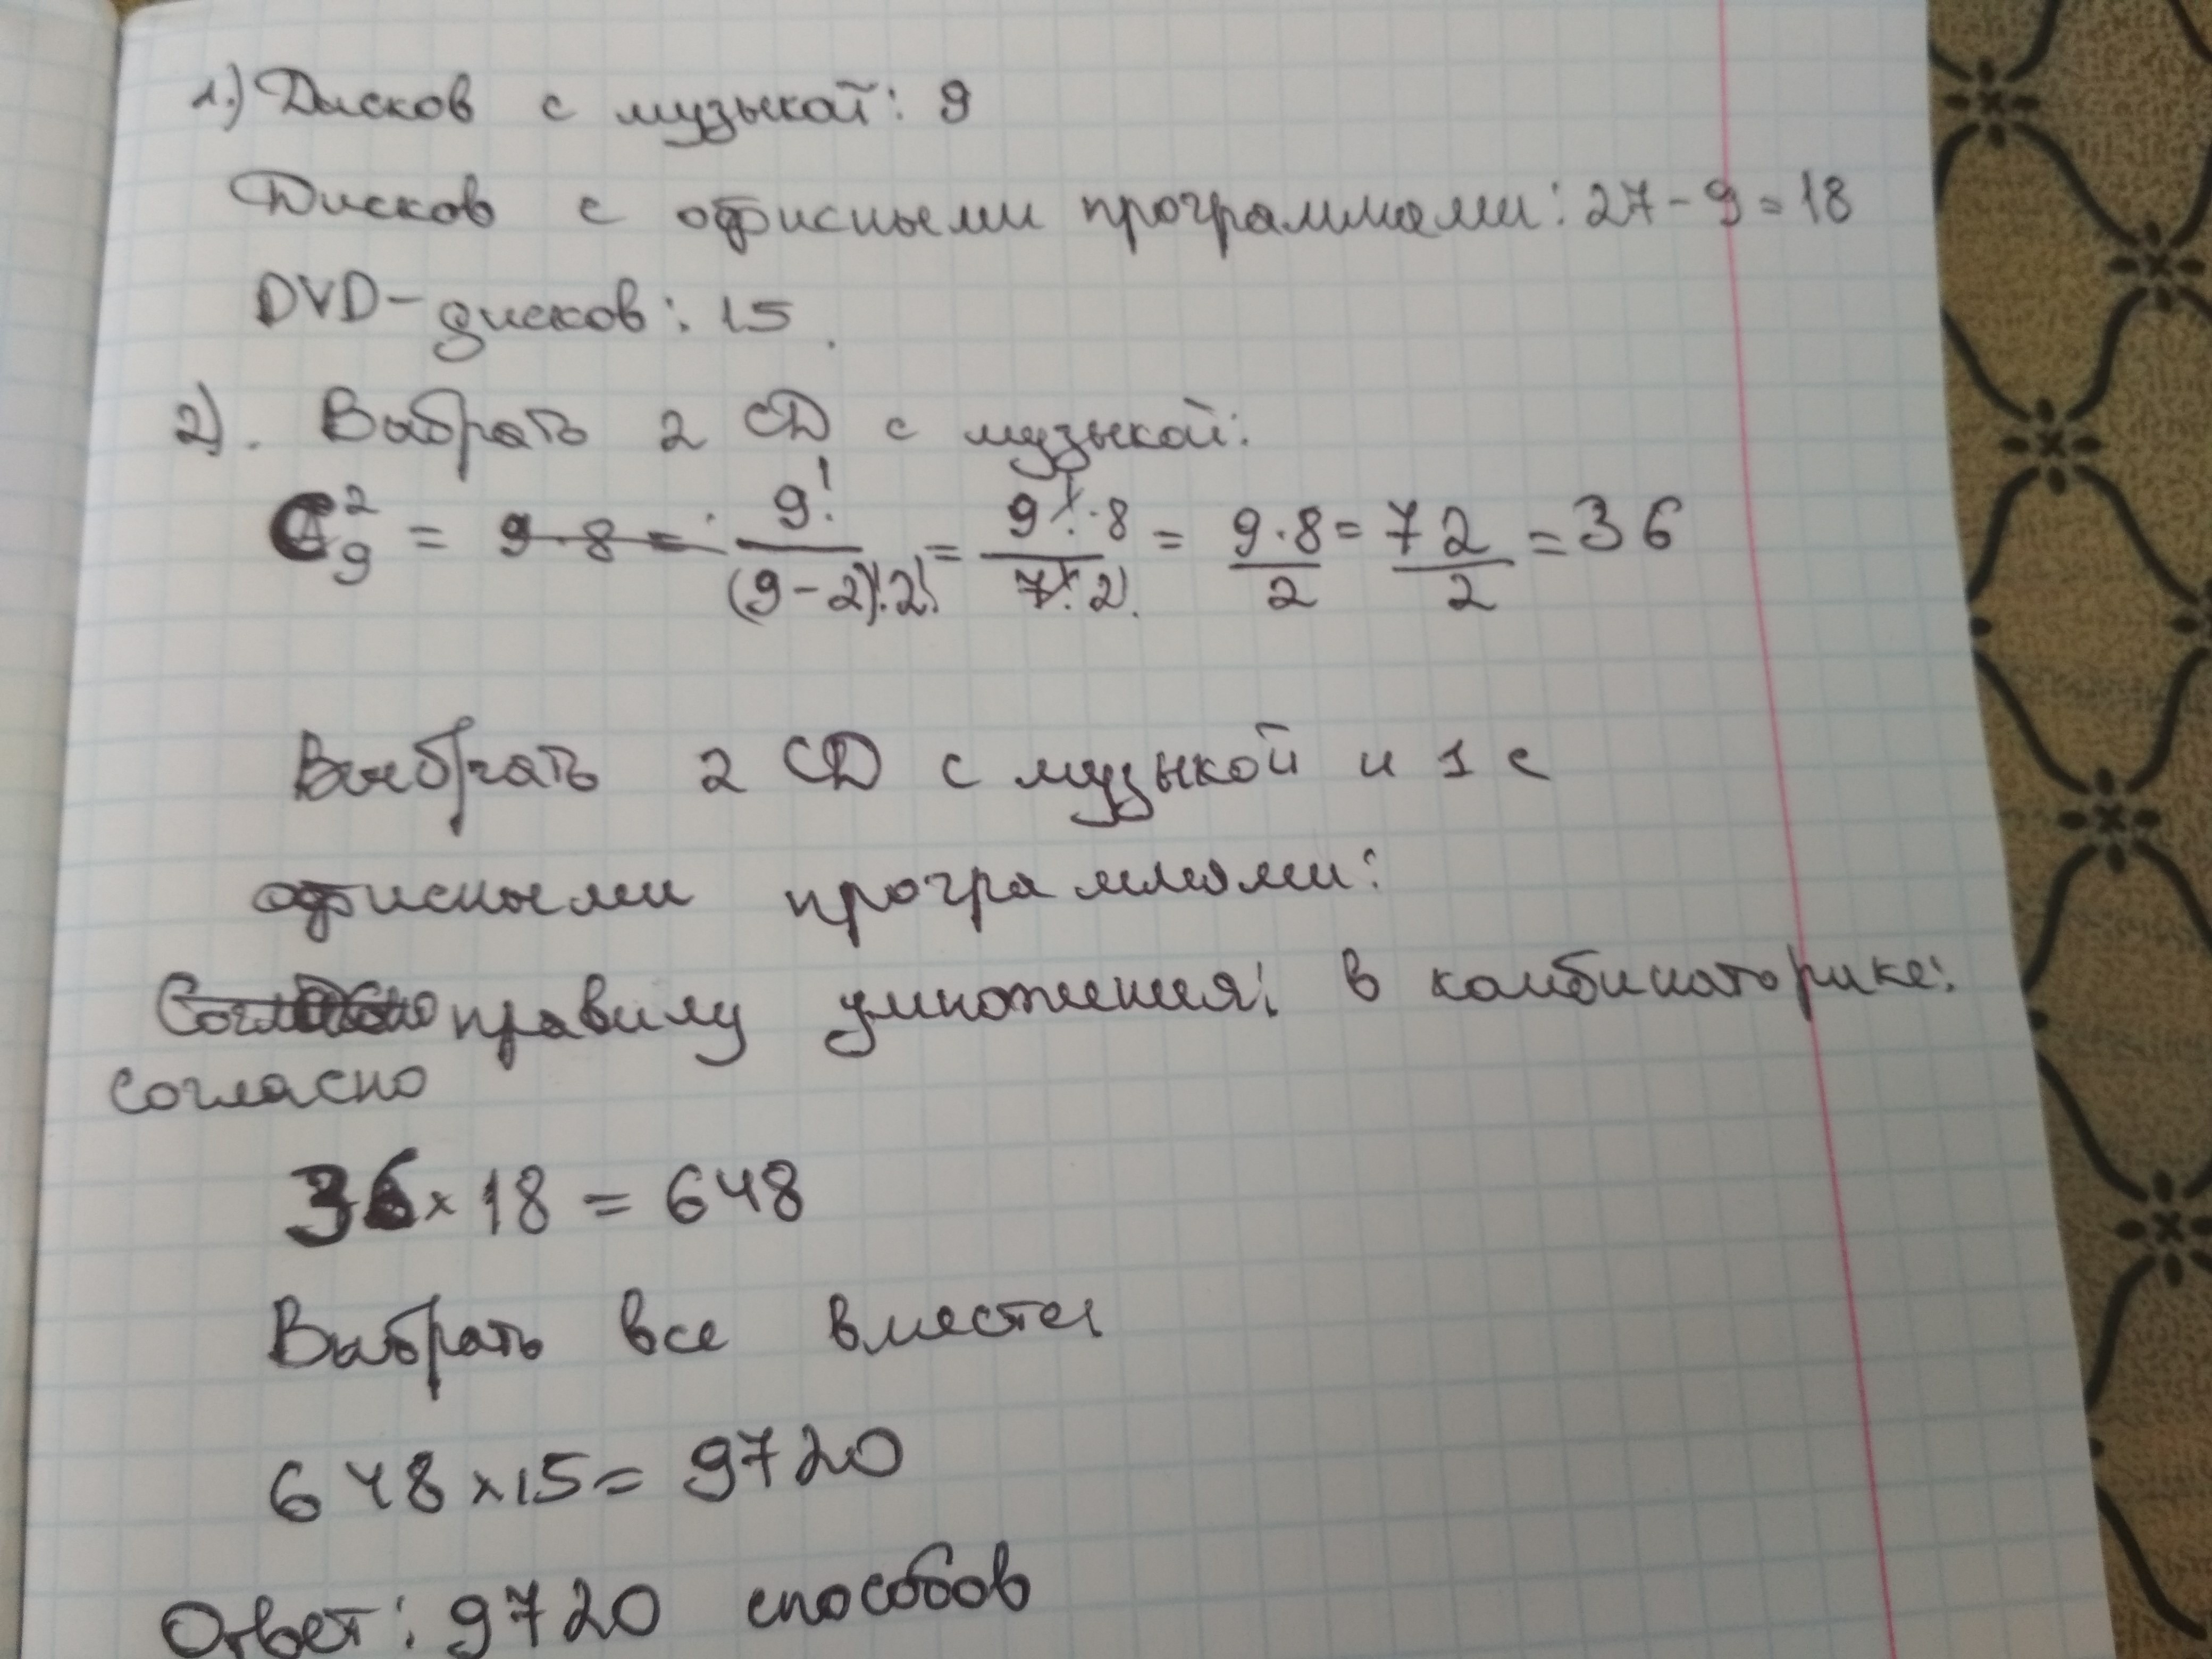 1.) Дисков с музыкой: 9
Дисков с офисными программами: 27 - 9 = 18
DVD - дисков: 15.
2). Выбрать 2 CD с музыкой:
C²₉ = 9·8 = 9!/(9-2)!·2! = 9!·8/7!·2! = 9·8/2 = 72/2 = 36
Выбрать 2 CD с музыкой и 1 с
офисными программами:
Согласно правилу умножения: в комбинаторике:
согласно
36 × 18 = 648
Выбрать все вместе:
648 × 15 = 9720
Ответ: 9720 способов